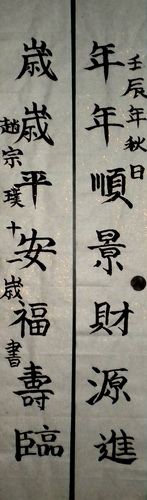 壬辰年秋日
年年順景財源進
歲歲平安福壽臨
趙宗璞十一歲書